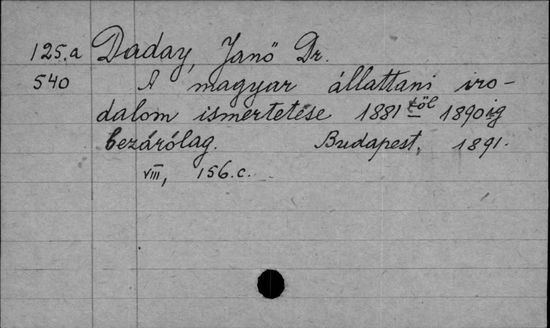 125.a Daday, Janő Dr.
540 A magyar állattani iro-
dalom ismertetése 1881től 1890ig
bezárólag. Budapest, 1891.
VIII, 156.c.